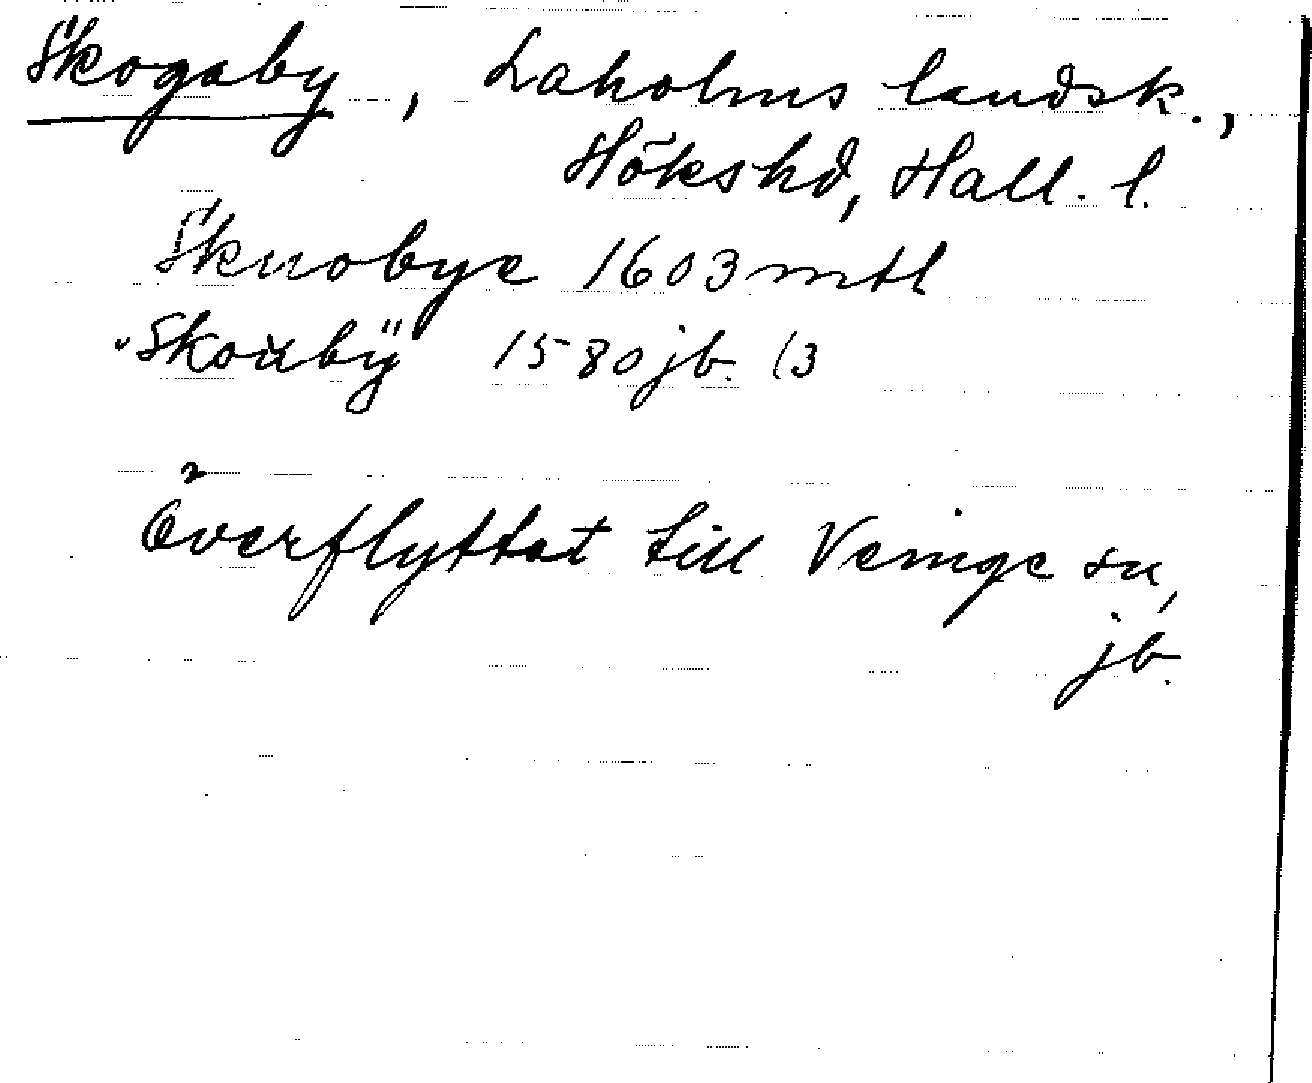 Skogaby, Laholms landsk.,
Hökshd, Hall. l.
Skuobye 1603 mtl
"Skouby" 1580 jb. (3
Överflyttat till Veinge sn,
jb.